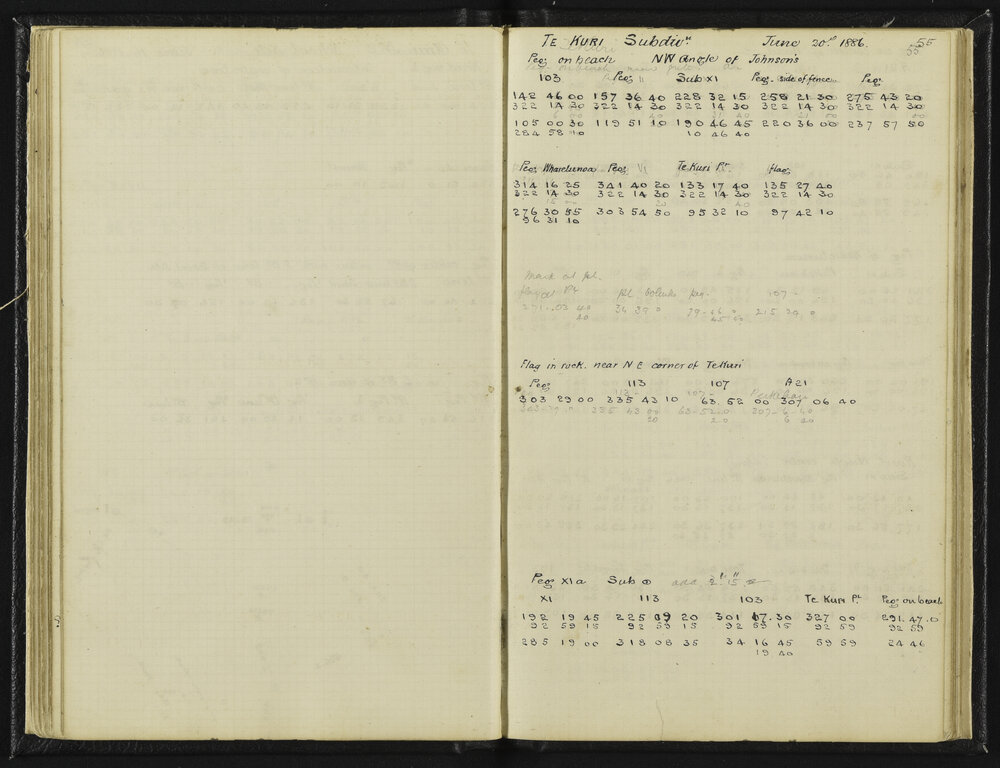 TE KURI Subdivn June 20th 1886. 55
Peg on beach NW Angle of Johnson's
103 Peg 11 Sub XI Peg. side of fence Peg
142 46 00 157 36 40 228 32 15 258 21 30 275 43 20
322 14 30 322 14 30 322 14 30 322 14 30 322 14 30
105 00 30 119 51 10 190 46 45 220 36 00 237 57 50
284 58 10 10 46 40
Peg Wharetunoa Peg VI Te Kuri Pt. flag
314 16 25 341 40 20 133 17 40 135 27 40
322 14 30 322 14 30 322 14 30 322 14 30
276 30 55 303 54 50 95 32 10 97 42 10
96 31 10
Mark at pt.
flag at Pt pt peg. 107
271 03 40 34 39 0 215 20 0
Flag in rock. near N E corner of Te Kuri
Peg 113 107 A21
303 29 00 335 43 10 63. 52 00 307 06 40
335 43 00 63-52-0 307-6-40
20 20
Peg XIa Sub add 2' 15"
XI 113 103 Te Kuri Pt. Peg on beach
192 19 45 225 09 20 301 17.30 327 00 291.47.0
92 59 15 92 59 15 92 59 15 92 59 92 59
285 19 00 318 08 35 34 16 45 59 59 24 46
19 40